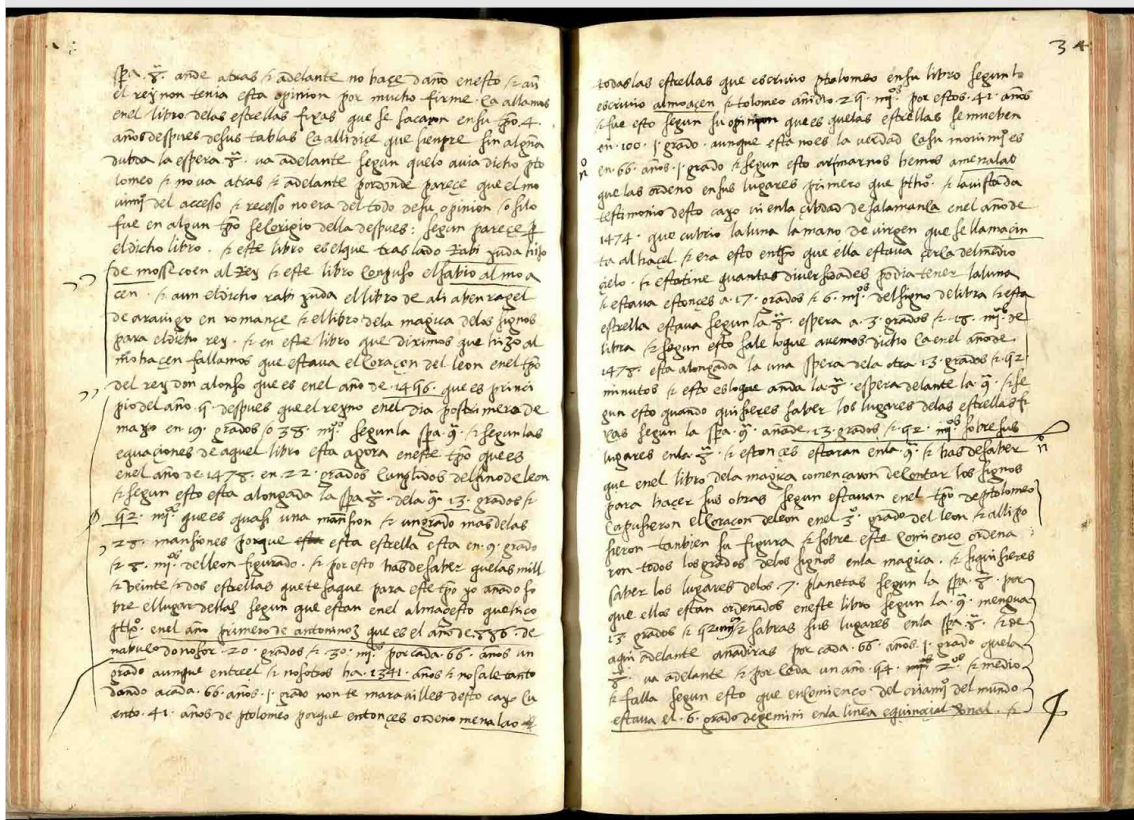 spa. 8ª. ande atras & adelante no haçe daño en esto & aũ
el rey non tenia esta opinion por mucho firme. Ca allamos
en el libro delas estrellas fixas que se sacaron en su tpõ. 4.
años despues de sus tablas Ca alli diçe que sienpre sin alguna
dubda la espera 8ª. va adelante segun que lo avia dicho pto
lomeo & no va atras & adelante por donde pareçe que el mo
vimjº del accesso & recesso no era del todo de su opinion / o si lo
fue en algun tpõ se corigio della despues: segun pareçe ꝑ
el dicho libro. & este libro es el que traslado Rabi yuda hijo
de mosse coen al Rey & este libro Conpuso el sabio al mo a
çen. & aun el dicho rabi yuda el libro de ali aben ragel
de aravigo en romançe & el libro de la magica delos signos
para el dicho rey. & en este libro que dixmos que hizo al
mohaçen fallamos que estava el Coraçon del leon en el tpõ
del rey don alonso que es en el año de 1256. que es princi
pio del año. 4. despues que el regno en el dia postrimero de
mayo en 19. grados / o 38. mjº. segun la spa. 9ª. & segun las
equaçiones de aquel libro esta agora en este tpõ que es
en el año de 1478. en 22. grados Cunplidos del sino de leon
& segun esto esta alongada la spa 8ª. dela 9ª. 13. grados &
42. mjº. que es quasi una mansion & un grado mas delas
28. mansiones porque esta estrella esta en. 9. grados
& 8. mjº. del leon figurado. & por esto has de saber que las mill
& veinte & dos estrellas que te saque para este tpõ yo añado so
bre el lugar dellas segun que estan en el almagesto que hiço
ptlº. en el año primero de antoninoz que es el año de 886. de
nabucodonosor. 20. grados & 30. mjº. por cada. 66. años un
grado aunque entre el & nosotros ha. 1341. años & no sale tanto
dando a cada. 66. años. 1. grado non te maravilles desto cayo Cu
ento. 41. años de ptolomeo porque entonçes ordeno menalao
34
todas las estrellas que escrivio ptolomeo en su libro segun lo
escrivio almoaçen & tolomeo añidio. 25. mjºs. por estos. 41. años
& fue esto segun su opinion que es quelas estrellas se mueben
en. 100. 1. grado. aunque esta no es la verdad Ca su movimjº es
en. 66. años. 1. grado & segun esto afirmarnos hemos a menalao
que las ordeno en sus lugares primero que ptlhº. & la vista da
testimonio desto cayo vi en la ciudad de salamanca en el año de
1474. que cubrio la luna la mano de virgen que se llama çin
ta alhaçel. & era esto en tpõ que ella estava çerca del medio
çielo. & estatine quantas diversidades podia tener la luna
& estava estonçes a. 17. grados & 6. mjºs. del signo de libra & esta
estrella estava segun la. 8ª. espera a. 3. grados & 18. mjºs. de
libra. & segun esto sale lo que avemos dicho Ca en el año de.
1478. esta alongada la una spera dela otra 13. grados & 42
minutos & esto es lo que anda la. 8ª. espera delante la. 9ª. & se
gun esto quando quisieres saber los lugares delas estrellas fi
xas segun la spa. 9ª. añade. 13. grados & 42. mjºs. sobre sus
lugares en la 8ª. & estonçes estaran en la. 9ª. & has de saber
que en el libro dela magica començaron de Contar los signos
para haçer sus obras segun estavan en el tpõ de ptolomeo
Ca pusieron el Coraçon de leon en el 3º. grado del leon & alli po
sieron tanbien su figura & sobre este Comienço ordena
ron todos los grados delos signos en la magica. & si quisieres
saber los lugares delos. 7. planetas segun la spa. 8ª. por
que ellos estan ordenados en este libro segun la. 9ª. mengua
13 grados & 42 mjº & sabras sus lugares en la spa. 8ª. & de
aqui adelante añadiras por cada. 66. años. 1. grado que la
8ª. va adelante & por Cada un año. 54. mjºs 2ºs. & medio
& falla segun esto que en Comienço del criamjº del mundo
estava el. 6. grado de gemini en la linea equinoçial donal. &